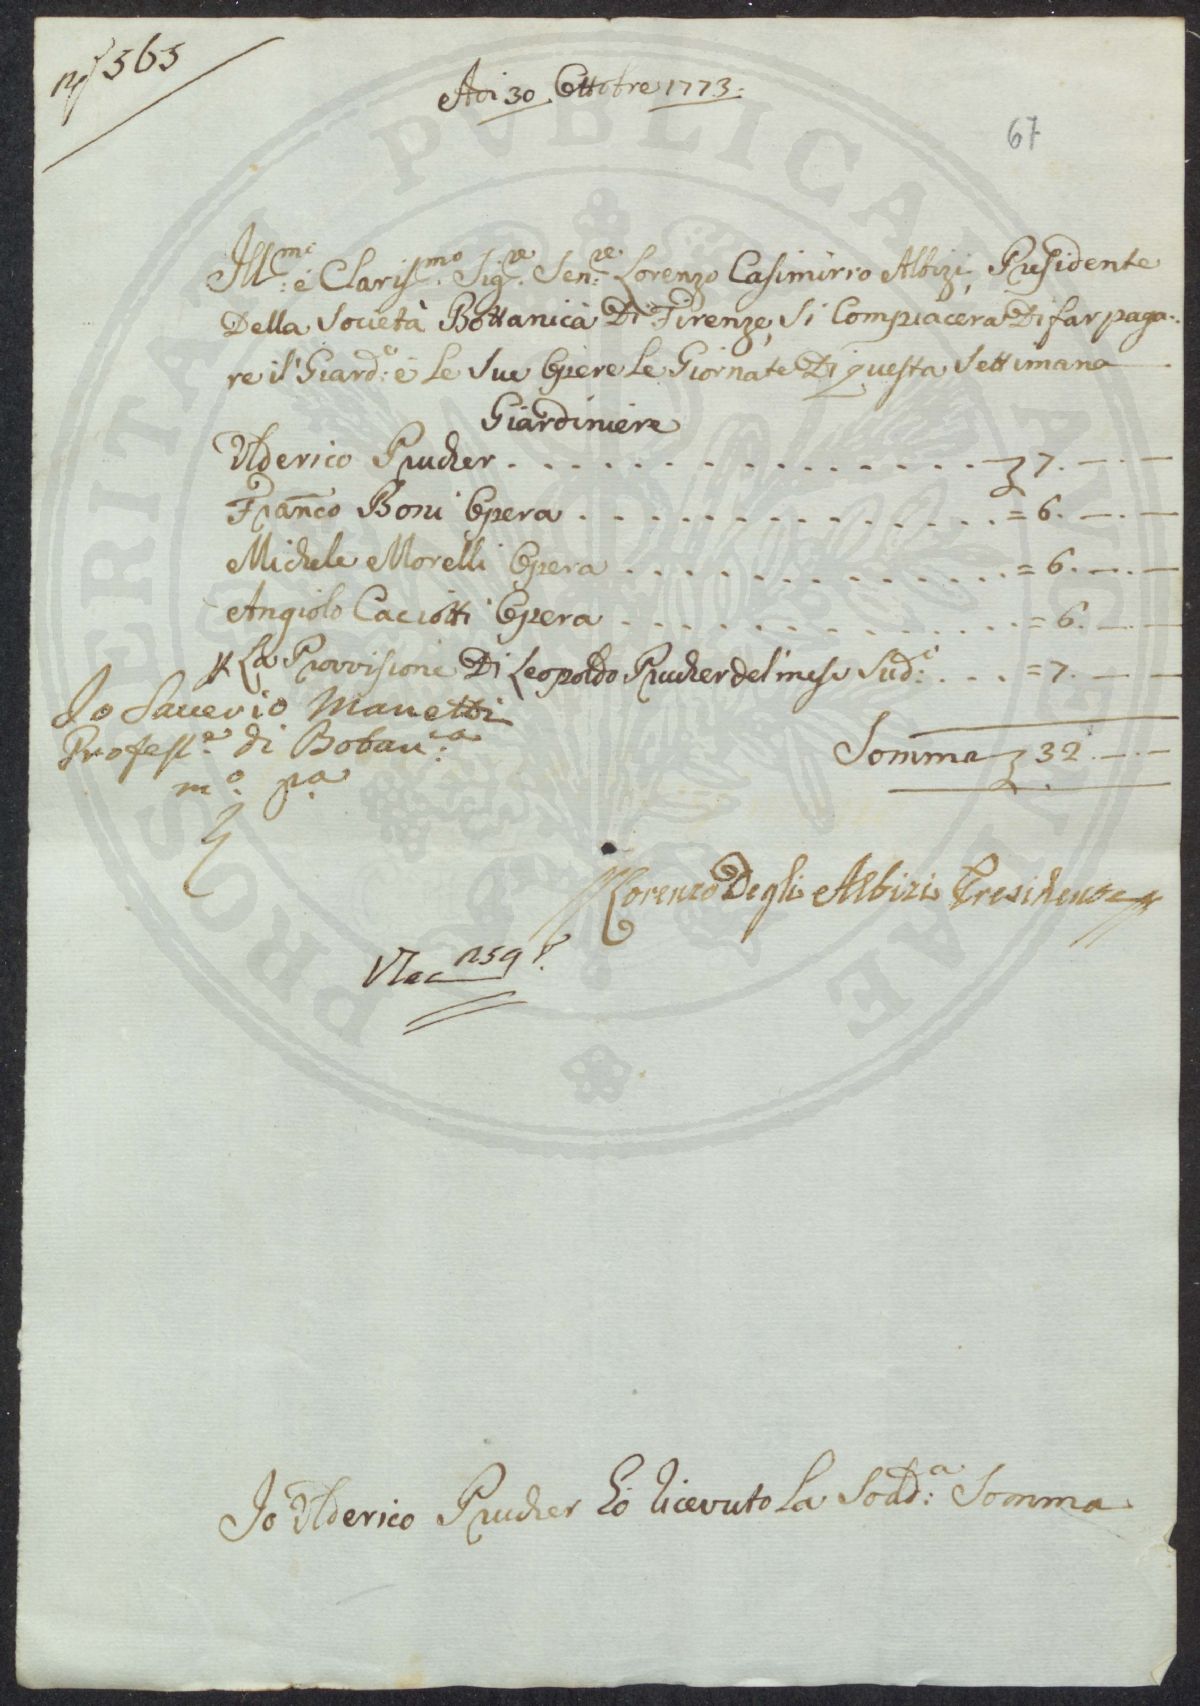 N.º 563
Adi 30 Ottobre 1773.
67
Ill.mo e Claris.mo Sig.re Sen.re Lorenzo Casimirro Albizi, Presidente
Della Società Bottanica Di Firenze, Si Compiacerà Di far paga-
re il Giard.e e Le Sue Opere Le Giornate Di questa Settimana
Giardiniere
Ulderico Prucher . . . . . . . . . . 7. — . —
Fran̄co Boni Opera . . . . . . . . . . = 6. — . —
Michele Morelli Opera . . . . . . . . . . = 6. — . —
Angiolo Caciotti Opera . . . . . . . . . . = 6. — . —
La Provvisione Di Leopoldo Prucher del mese Sud.o . . . . = 7. — . —
Somma 32. — . —
Io Saverio Manetti
Profess.e di Botan.ca
m.o p.a
Lorenzo Degli Albizi Presidente
259
Io Ulderico Prucher ho ricevuto La Sodd.a Somma
PROSPERITATI PVBLICAE AVGENDAE